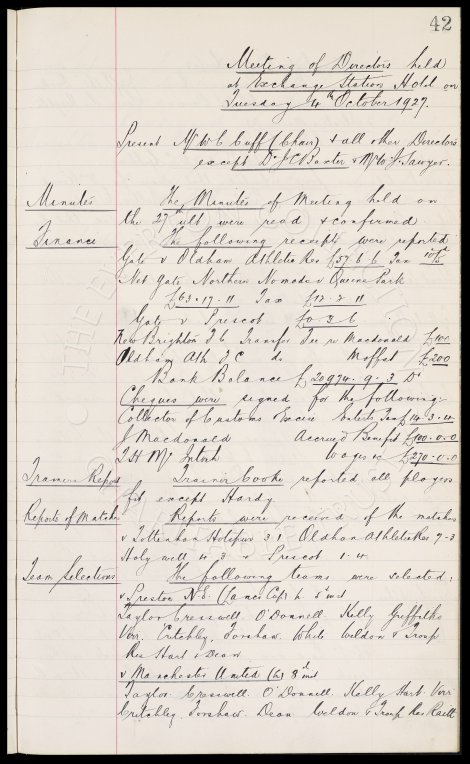 42
Meeting of Directors held
at Exchange Station Hotel on
Tuesday 4th October 1927.
Present Mr W C Cuff (Chair) & all other Directors
except Dr J C Baxter & Mr W J Sawyer.
Minutes The Minutes of Meeting held on
the 27th ult were read & confirmed
Finance The following receipts were reported
Gate v Oldham Athletic Res £57. 6. 6 Tax
Net Gate Northern Nomads v Queens Park
£63. 17. 11 Tax £12. 2. 11
Gate v Prescot £0. 3. 6
New Brighton F C Transfer Fee re Macdonald £100
Oldham Ath F C do Moffat £200
Bank Balance £20974. 9. 3 Dr
Cheques were signed for the following:-
Collector of Customs Excise Enterts Tax £14. 3. 4
J Macdonald Accrued Benefit £100. 0. 0
T H McIntosh Wages &c £270. 0. 0
Trainers Report Trainer Cooke reported all players
fit except Hardy
Reports of Matches Reports were received of the matches
v Tottenham Hotspur 3 1 Oldham Athletic Res 7-3
Holywell 4. 3 v Prescot 1. 4
Team Selections The following teams were selected:
v Preston N.E. (Lancs Cup) h 5th inst
Taylor Cresswell. O'Donnell. Kelly Griffiths
Virr. Critchley. Forshaw. White Weldon & Troup
Res Hart & Dean
v Manchester United (h) 8th inst
Taylor. Cresswell. O'Donnell. Kelly Hart. Virr
Critchley. Forshaw. Dean Weldon & Troup Res Raitt